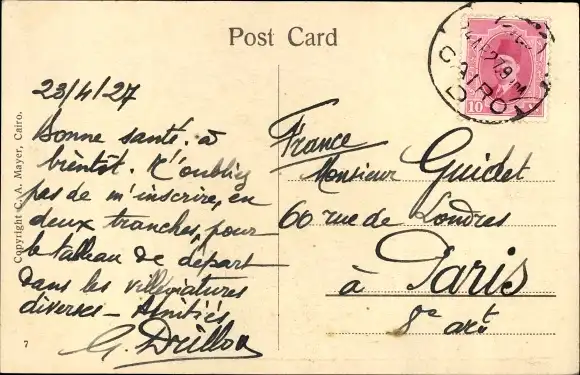 Post Card
CAIRO
10
23/4/27
Bonne santé. à
bientôt. N'oubliez
pas de m'inscrire, en
deux tranches, pour
le tableau de départ
dans les villégiatures
diverses – Amitiés
G.
France
Monsieur Guichet
60 rue de Londres
à Paris
8e arrt
Copyright C. A. Mayer, Cairo.
7